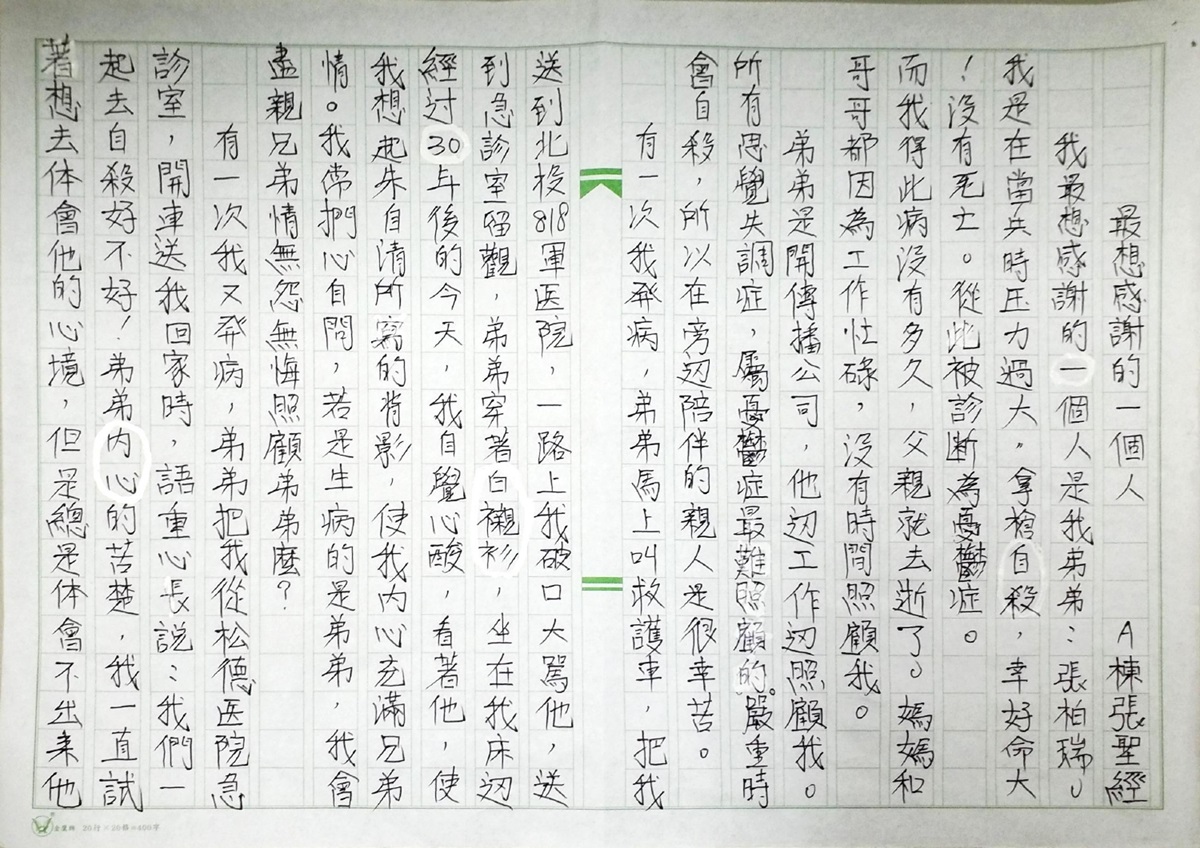 最想感謝的一個人　　A棟張聖經
我最想感謝的一個人是我弟弟：張柏瑞。
我是在當兵時压力過大。拿槍自殺，幸好命大
！沒有死亡。從此被診断為憂鬱症。
而我得此病沒有多久，父親就去逝了。媽媽和
哥哥都因為工作忙碌，沒有時間照顧我。
弟弟是開傳播公司，他边工作边照顧我。
所有思覺失調症，屬憂鬱症最難照顧的。嚴重時
會自殺，所以在旁边陪伴的親人是很幸苦。
有一次我発病，弟弟馬上叫救護車，把我
送到北投818軍医院，一路上我破口大駡他，送
到急診室留觀，弟弟穿著白襯衫，坐在我床边
經过30年後的今天，我自覺心酸，看著他，使
我想起朱自清所寫的背影，使我内心充滿兄弟
情。我常捫心自問，若是生病的是弟弟，我會
盡親兄弟情無怨無悔照顧弟弟麽？
有一次我又発病，弟弟把我從松德医院急
診室，開車送我回家時，語重心長説：我們一
起去自殺好不好！弟弟内心的苦楚，我一直試
著想去体會他的心境，但是總是体會不出来他
20行×20格=400字